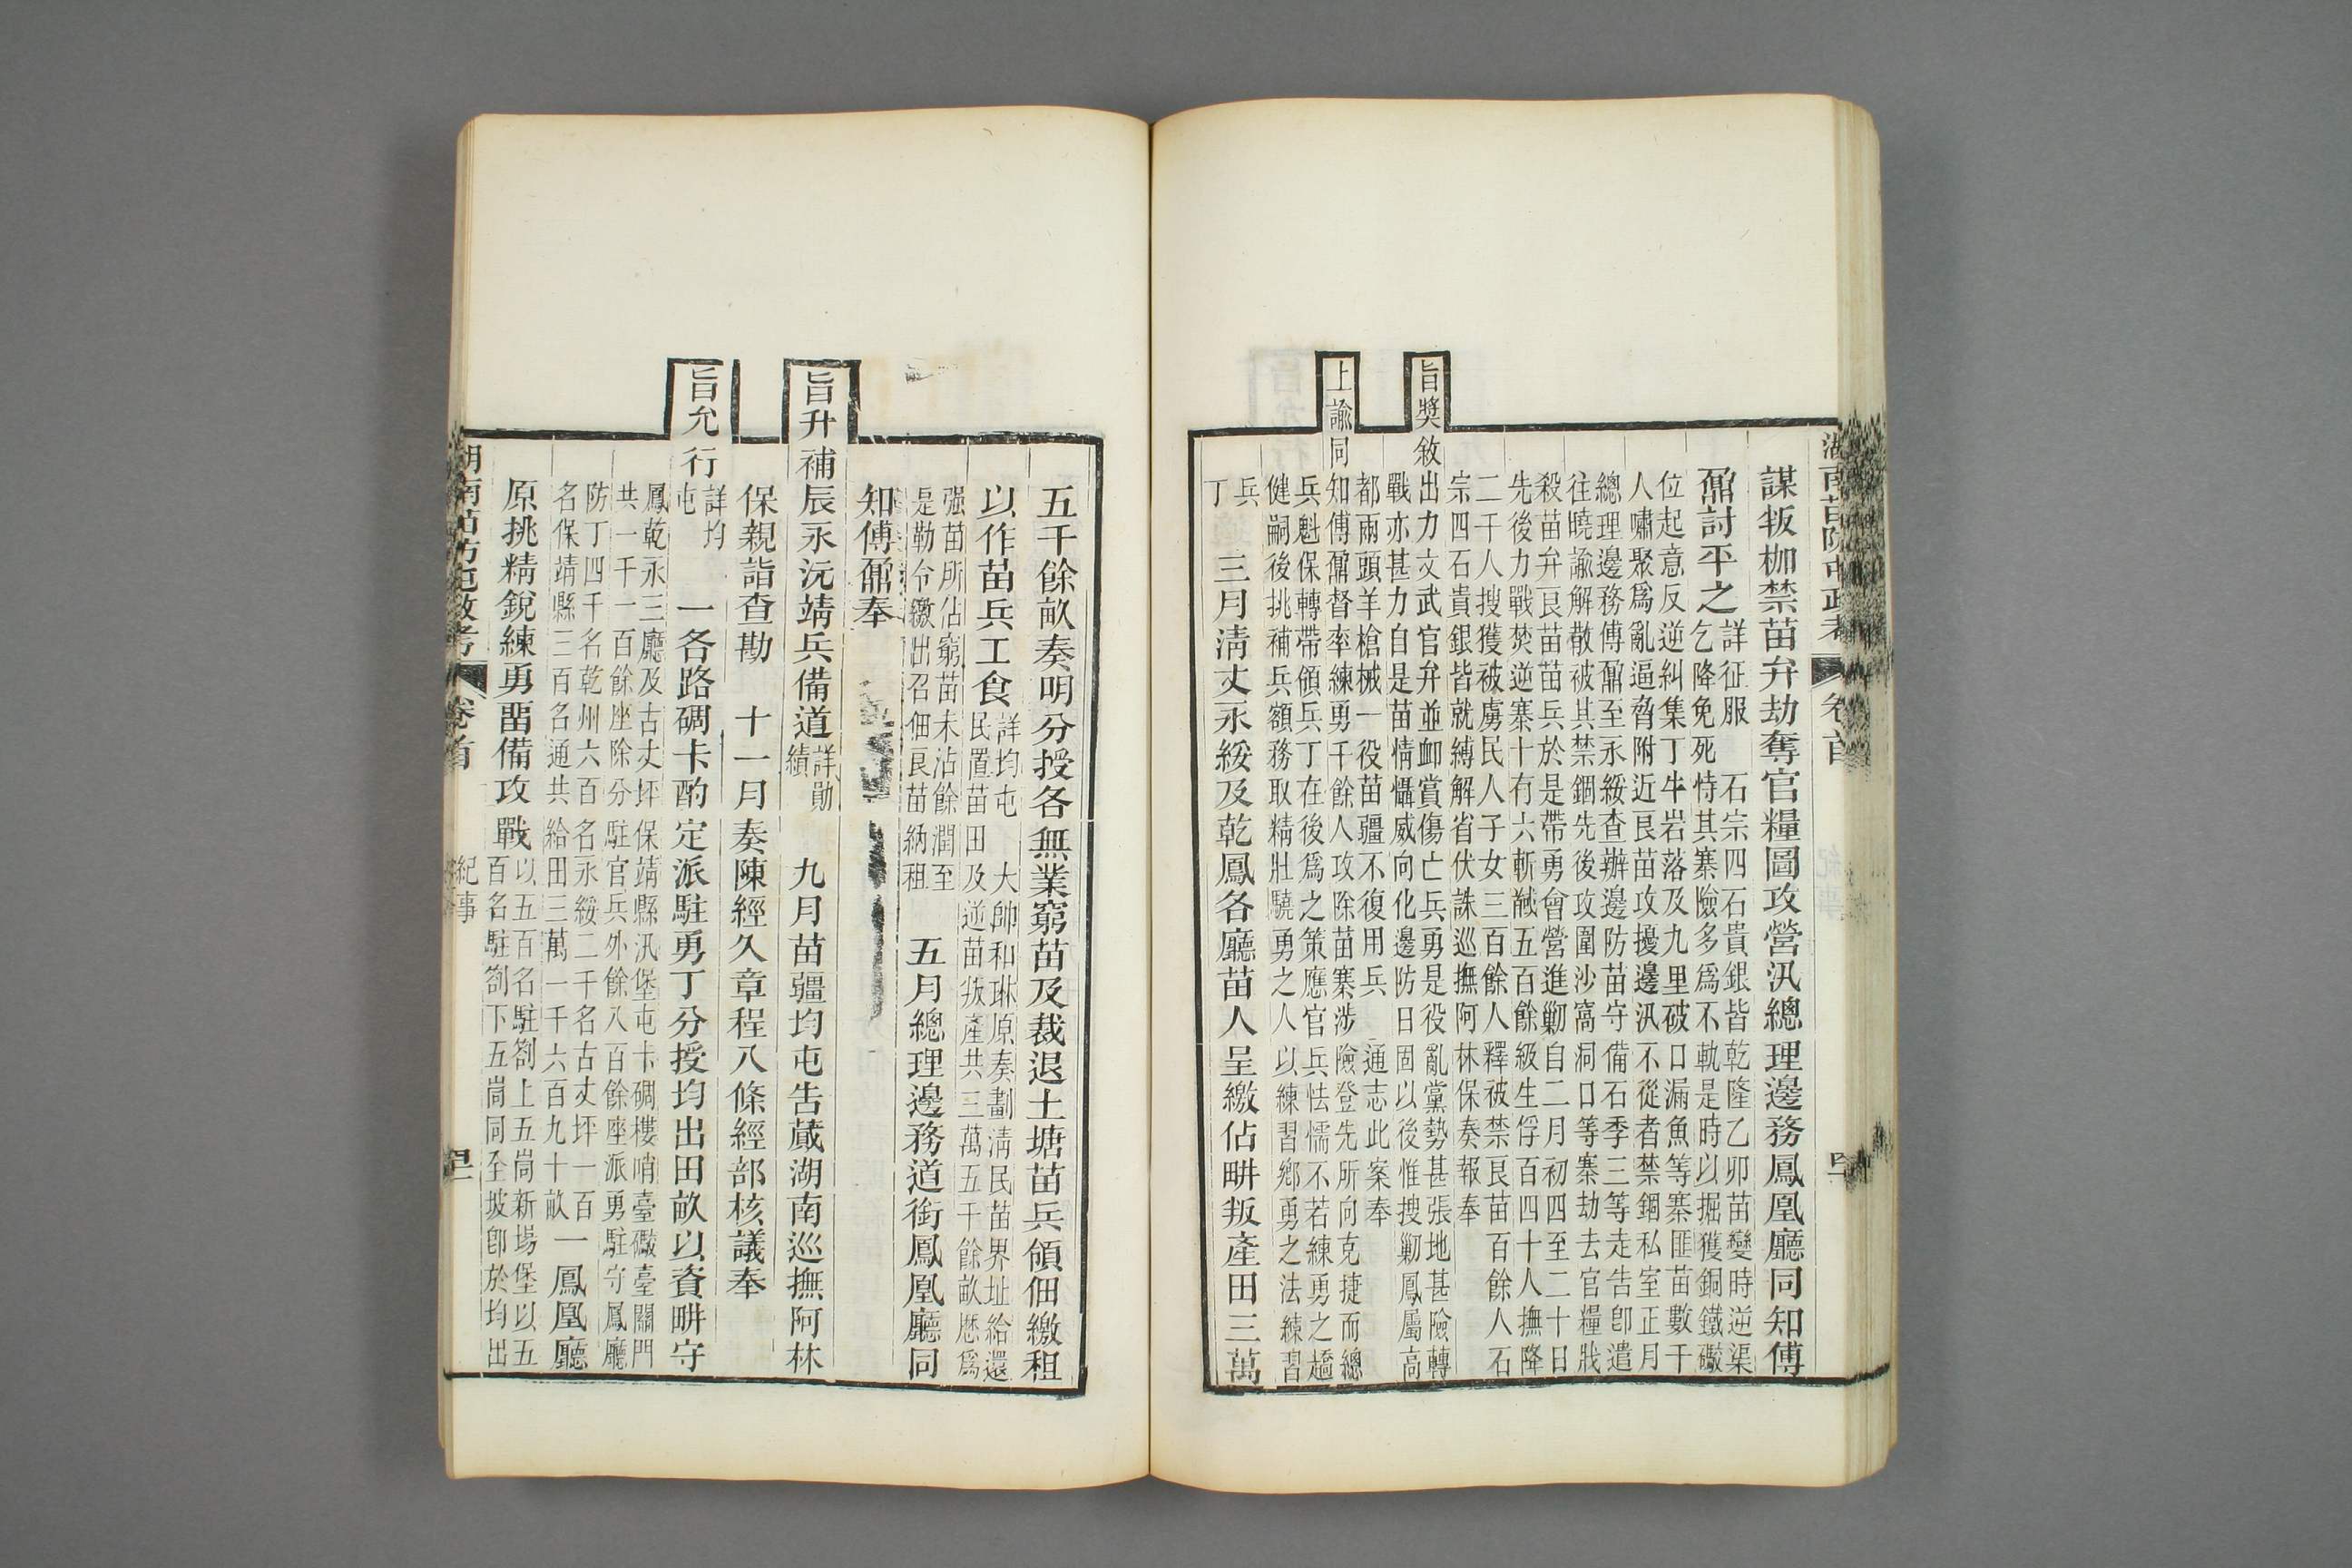 湖南苗防屯政考　卷首
謀叛枷禁苗弁劫奪官糧圖攻營汛總理邊務鳳凰廳同知傅
鼐討平之
詳征服　石宗四石貴銀皆乾隆乙卯苗變時逆渠
乞降免死恃其寨險多爲不軌是時以掘獲銅鐵礮
位起意反逆糾集丁牛岩落及九里破口漏魚等寨匪苗數千
人嘯聚爲亂逼脅附近良苗攻擾邊汛不從者禁錮私室正月
總理邊務傅鼐至永綏查辦邊防苗守備石季三等走告卽遣
往曉諭解散被其禁錮先後攻圍沙窩洞口等寨劫去官糧戕
殺苗弁良苗苗兵於是帶勇會營進勦自二月初四至二十日
先後力戰焚逆寨十有六斬馘五百餘級生俘百四十人撫降
二千人搜獲被虜民人子女三百餘人釋被禁良苗百餘人石
宗四石貴銀皆就縛解省伏誅巡撫阿林保奏報奉
旨獎敘出力文武官弁並卹賞傷亡兵勇是役亂黨勢甚張地甚險轉
戰亦甚力自是苗情懾威向化邊防日固以後惟搜勦鳳屬高
都兩頭羊槍械一役苗疆不復用兵　通志此案奉
上諭同知傅鼐督率練勇千餘人攻除苗寨涉險登先所向克捷而總
兵魁保轉帶領兵丁在後爲之策應官兵怯懦不若練勇之趫
健嗣後挑補兵額務取精壯驍勇之人以練習鄉勇之法練習
兵
丁
三月淸丈永綏及乾鳳各廳苗人呈繳佔畊叛產田三萬
五千餘畝奏明分授各無業窮苗及裁退土塘苗兵領佃繳租
以作苗兵工食
詳均屯　大帥和琳原奏劃淸民苗界址給還
民置苗田及逆苗叛產共三萬五千餘畝歴爲
强苗所佔窮苗未沾餘潤至
是勒令繳出召佃良苗納租
五月總理邊務道銜鳳凰廳同
知傅鼐奉
旨升補辰永沅靖兵備道
詳勛
績
九月苗疆均屯告蕆湖南巡撫阿林
保親詣查勘　十一月奏陳經久章程八條經部核議奉
旨允行
詳均
屯
一各路碉卡酌定派駐勇丁分授均出田畝以資畊守
鳳乾永三廳及古丈坪保靖縣汛堡屯卡碉樓哨臺礮臺關門
共一千一百餘座除分駐官兵外餘八百餘座派勇駐守鳳廳
防丁四千名乾州六百名永綏二千名古丈坪一百
名保靖縣三百名通共給田三萬一千六百九十畝
一鳳凰廳
原挑精銳練勇留備攻戰
以五百名駐劄上五峝新場堡以五
百名駐劄下五峝同全坡卽於均出
湖南苗防屯政考　卷首　紀事